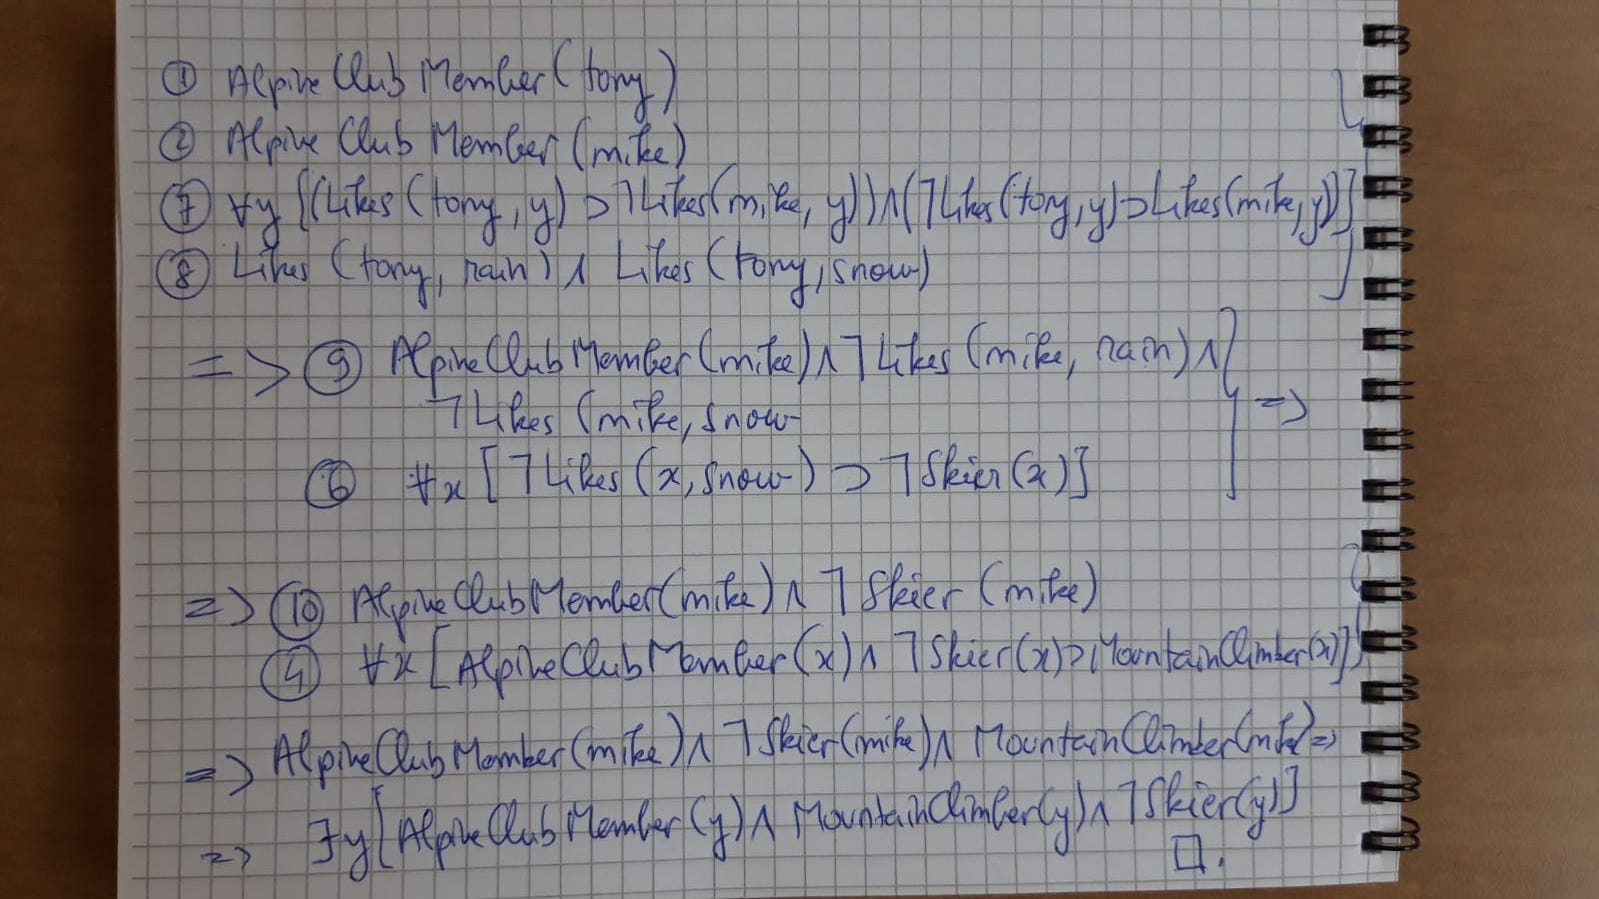 ① AlpineClubMember(tony)
② AlpineClubMember(mike)
⑦ ∀y [(Likes(tony, y) ⊃ ¬Likes(mike, y)) ∧ (¬Likes(tony, y) ⊃ Likes(mike, y))]
⑧ Likes (tony, rain) ∧ Likes (tony, snow)
=> ⑨ AlpineClubMember(mike) ∧ ¬Likes (mike, rain) ∧
¬Likes (mike, snow
⑥ ∀x [¬Likes (x, snow) ⊃ ¬Skier(x)] } =>
=> ⑩ AlpineClubMember(mike) ∧ ¬Skier (mike)
④ ∀x [AlpineClubMember(x) ∧ ¬Skier(x) ⊃ MountainClimber(x)]
=> AlpineClubMember(mike) ∧ ¬Skier(mike) ∧ MountainClimber(mike) =>
=> ∃y [AlpineClubMember(y) ∧ MountainClimber(y) ∧ ¬Skier(y)]
□.